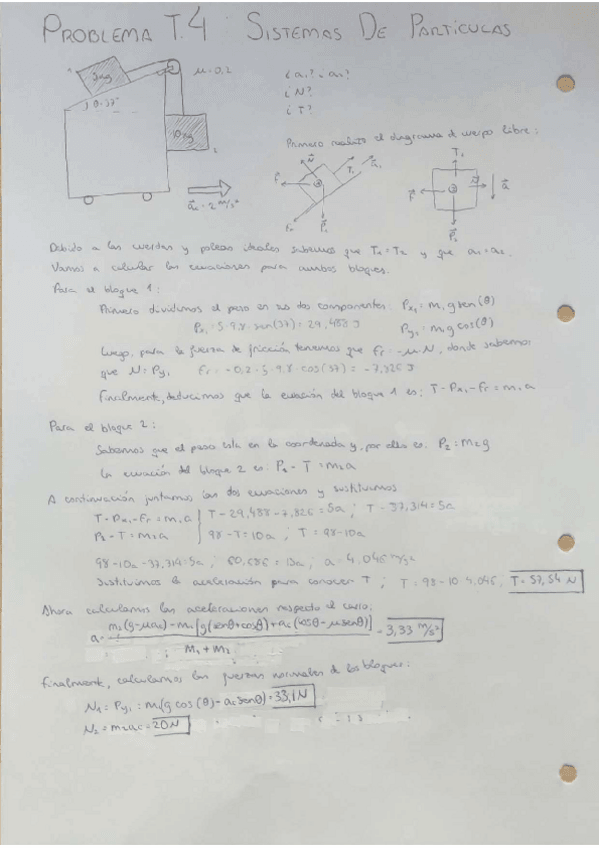 PROBLEMA T.4 SISTEMAS DE PARTÍCULAS
μ=0,2
θ=37°
10kg
a_c = 2 m/s²
¿a₁? ¿a₂?
¿N?
¿T?
Primero realizo el diagrama d cuerpo libre:
Debido a las cuerdas y poleas ideales sabemos que T₁=T₂ y que a₁=a₂.
Vamos a calcular las ecuaciones para ambos bloques.
Para el bloque 1:
Primero dividimos el peso en sus dos componentes: Px₁ = m₁gsen(θ)
Px₁ = 5·9,8·sen(37) = 29,488 Py₁ = m₁gcos(θ)
Luego, para la fuerza de fricción tenemos que Fr = -μ·N, donde sabemos
que N=Py₁ Fr = -0,2·5·9,8·cos(37) = -7,826
Finalmente, deducimos que la ecuación del bloque 1 es: T-Px₁-Fr = m₁a
Para el bloque 2:
Sabemos que el peso esta en la coordenada y, por ello es: P₂ = m₂g
La ecuación del bloque 2 es: P₂ - T = m₂a
A continuación juntamos las dos ecuaciones y sustituimos
T-Px₁-Fr = m₁a | T-29,488-7,826 = 5a ; T-37,314 = 5a
P₂-T = m₂a | 98-T = 10a ; T = 98-10a
98-10a-37,314 = 5a ; 60,686 = 15a ; a = 4,046 m/s²
Sustituimos la aceleración para conocer T ; T = 98-10·4,046, T = 57,54 N
Ahora calculamos las aceleraciones respecto el carro.
a = m₂(g-μa_c) - m₁[g(senθ+cosθ)+a_c(cosθ-μsenθ)] / m₁+m₂ = 3,33 m/s²
Finalmente, calculamos las fuerzas normales de los bloques:
N₁ = Py₁ = m₁(g cos(θ) - a_c senθ) = 33,1N
N₂ = m₂a_c = 20N